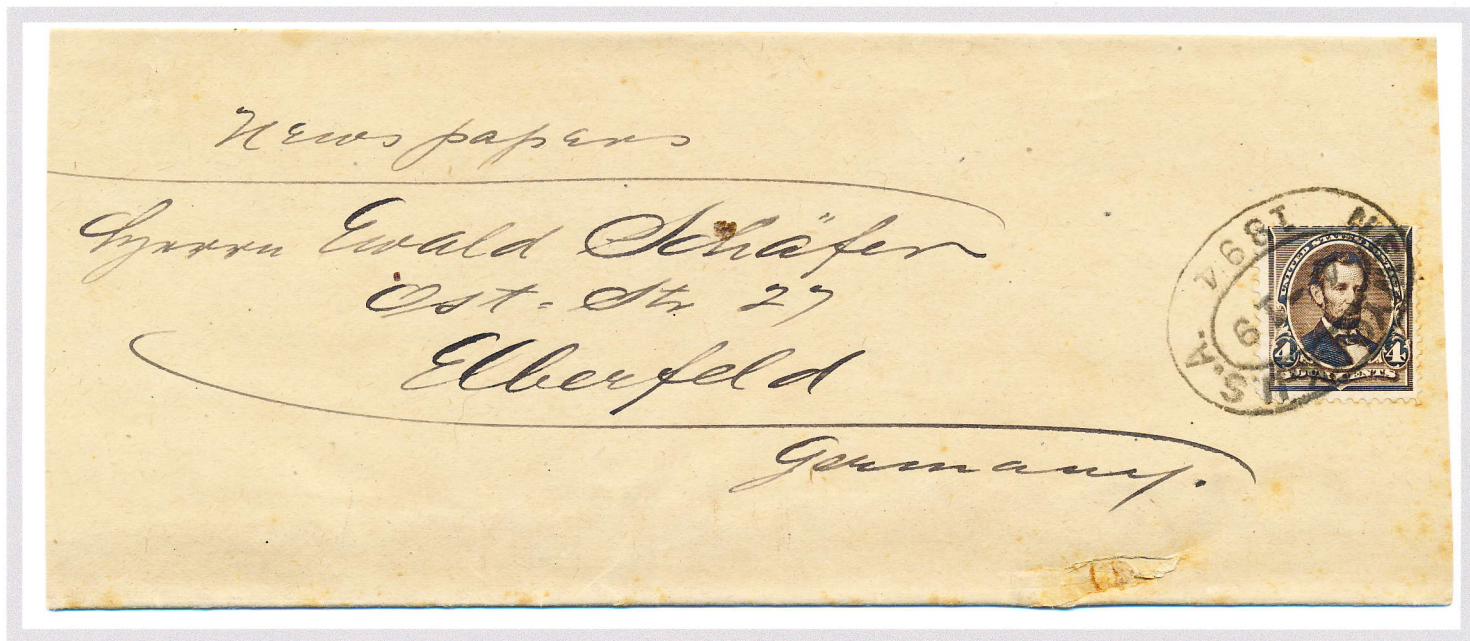 Newspapers
Herrn Ewald Schäfer
Ost-Str 27
Elberfeld
Germany.
1894
U.S.A.
UNITED STATES OF AMERICA
4 4
FOUR CENTS